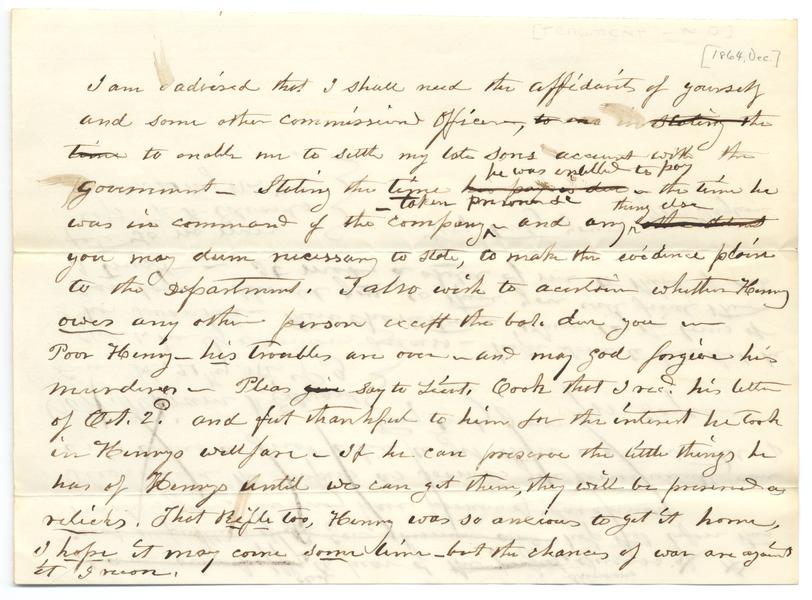 [1864, Dec.]
I am advised that I shall need the affidavits of yourself
and some other commissiond officer, to in stating the
time to enable me to settle my late sons account with the
he was intitled to pay
Government - Stating the time he pay is due - the time he
- taken prisoner &c thing else
was in command of the company, - and any other
you may dum necessary to state, to make the evidence plain
to the Department. I also wish to acertain whether Henry
owes any other person except the bal. due you -
Poor Henry - his troubles are over - and may god forgive his
murderers - Pleas give say to Lieut. Cook that I recd. his letter
of Oct. 2d and fut thankful to him for the interest he took
in Henrys wellfare - If he can preserve the little things he
has of Henrys until we can get them, they will be preserved as
relicks. That Rifle too, Henry was so anxious to get it home,
I hope it may come some time - but the chances of war are against
it I recon.